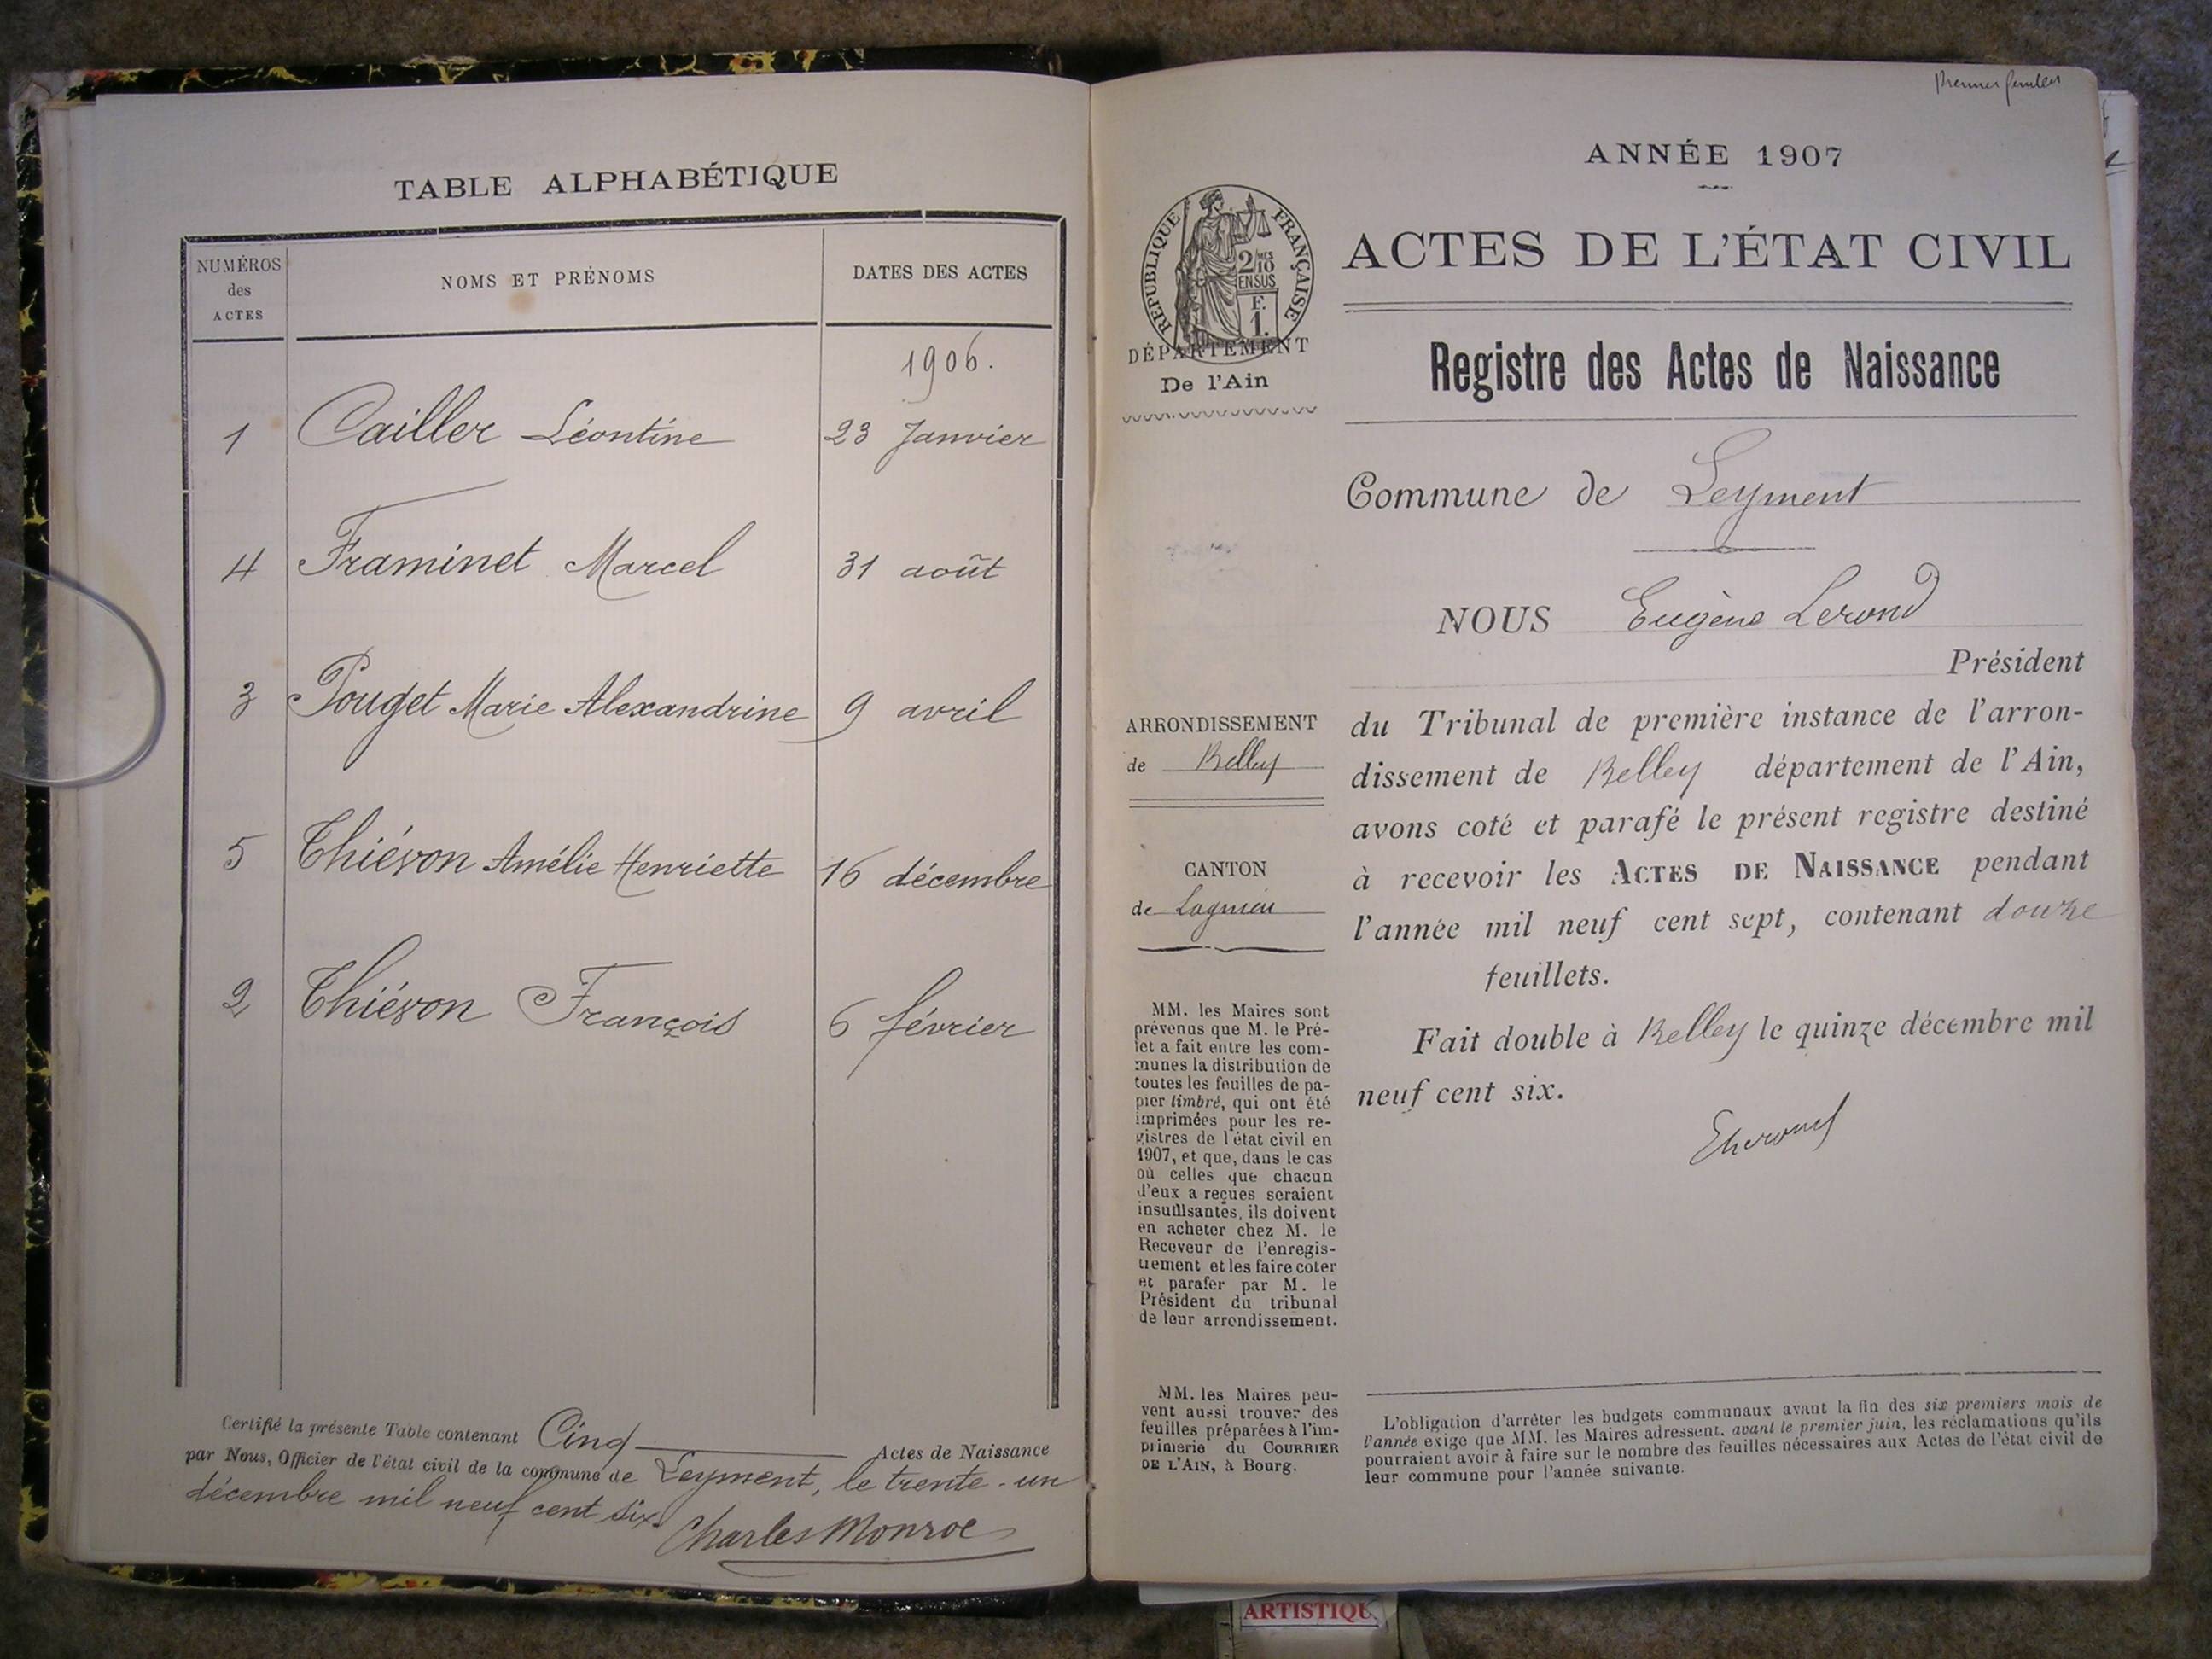 TABLE ALPHABÉTIQUE
NUMÉROS
des
ACTES
NOMS ET PRÉNOMS
DATES DES ACTES
1906.
1 Cailler Léontine 23 Janvier
4 Framinet Marcel 31 août
3 Pouget Marie Alexandrine 9 avril
5 Thiévon Amélie Henriette 16 décembre
2 Thiévon François 6 février
Certifié la présente Table contenant Cinq Actes de Naissance
par Nous, Officier de l'état civil de la commune de Leyment, le trente-un
décembre mil neuf cent six.
Charles Monroe
Premier feuillet
ANNÉE 1907
RÉPUBLIQUE FRANÇAISE
2 MES
10
EN SUS
F.
1.
DÉPARTEMENT
De l'Ain
ACTES DE L'ÉTAT CIVIL
Registre des Actes de Naissance
Commune de Leyment
NOUS Eugène Lerond
Président
du Tribunal de première instance de l'arron-
dissement de Belley département de l'Ain,
avons coté et parafé le présent registre destiné
à recevoir les ACTES DE NAISSANCE pendant
l'année mil neuf cent sept, contenant douze
feuillets.
Fait double à Belley le quinze décembre mil
neuf cent six.
ARRONDISSEMENT
de Belley
CANTON
de Lagnieu
MM. les Maires sont
prévenus que M. le Pré-
fet a fait entre les com-
munes la distribution de
toutes les feuilles de pa-
pier timbré, qui ont été
imprimées pour les re-
gistres de l'état civil en
1907, et que, dans le cas
où celles que chacun
d'eux a reçues seraient
insuffisantes, ils doivent
en acheter chez M. le
Receveur de l'enregis-
trement et les faire coter
et parafer par M. le
Président du tribunal
de leur arrondissement.
MM. les Maires peu-
vent aussi trouver des
feuilles préparées à l'im-
primerie du COURRIER
DE L'AIN, à Bourg.
L'obligation d'arrêter les budgets communaux avant la fin des six premiers mois de
l'année exige que MM. les Maires adressent, avant le premier juin, les réclamations qu'ils
pourraient avoir à faire sur le nombre des feuilles nécessaires aux Actes de l'état civil de
leur commune pour l'année suivante.
ARTISTIQU